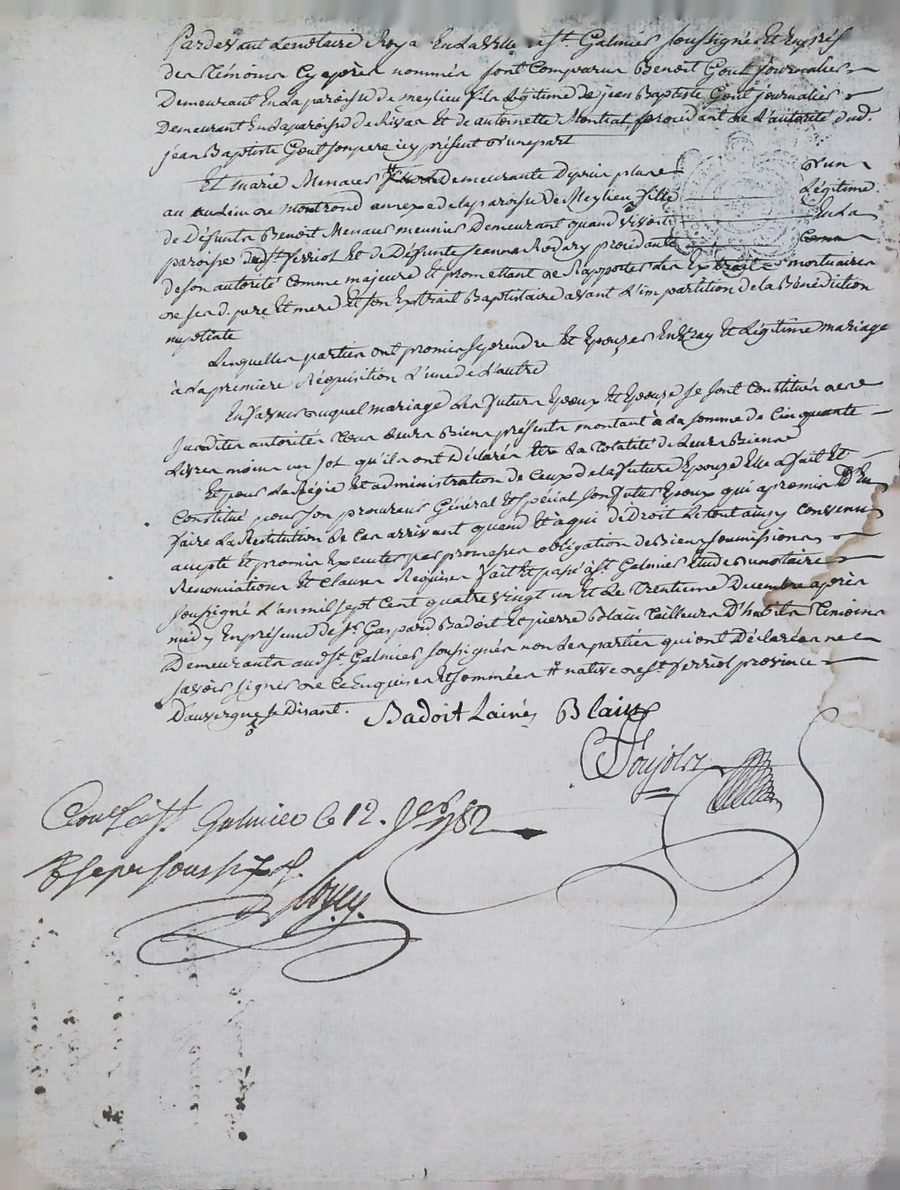 Pardevant Le notaire Royal En La ville de St. Galmier soussigné Et En présence
des témoins Cy après nommés sont Comparus Benoit Gout journalier
Demeurant En La paroisse de meylieu fils Légitime de jean Baptiste Gout journalier
Demeurant En La paroisse de Rivas Et de antoinette Montrat, procedant de L'autorité dud.
jean Baptiste Gout son pere icy présent D'une part
Et marie Menaus Demeurante Depuis plus D'un
au Lieu de montrond annexe de La paroisse de Meylieu fille Légitime
de Défunts Benoit Menaus meunier Demeurant quand vivoit En La
paroisse de St. ferriol Et de Défunte Jeanne Rodary procédante
de son autorité comme majeure Et promettant de Rapporter Les Extraits mortuaires
de sesd. pere Et mere Et son Extrait Baptistaire avant L'impartition de La Bénédiction
nuptiale
Lesquelles parties ont promis se prendre Et Epouser En vray Et Légitime mariage
à La premiere Réquisition L'une de L'autre
En faveur duquel mariage Les futurs Epoux Et Epouse se sont Constitués de
susdites autorités tous Leurs Biens présents montant à La somme de Cinquante
Livres moins un sol qu'ils ont Déclaré Etre La totalité de Leurs Biens
Et pour La Régie Et administration de Ceux de La future Epouse Elle a fait Et
Constitué pour son procureur Général Et spécial son futur Epoux qui a promis D'En
faire La Restitution Le Cas arrivant quand Et à qui de Droit Le tout ainsy convenu
accepté Et promis Executer par promesses obligation de Biens soumissions
Renonciations Et Clauses Requises fait Et passé a St. Galmier Etude du notaire
soussigné L'an mil sept Cent quatre vingt un Et Le trentieme Décembre après
midy En présence de Sr. Gaspard Badoit Et pierre Blain tailleurs D'habits témoins
Demeurants aud. St. Galmier soussignés non Les parties qui ont Déclaré ne
savoir signer de Ce Enquises Et sommées # native de St ferriol province
D'auvergne se Disant.
Badoit Lainé Blain
Poujol
Controllé à St. Galmier le 12. 1782